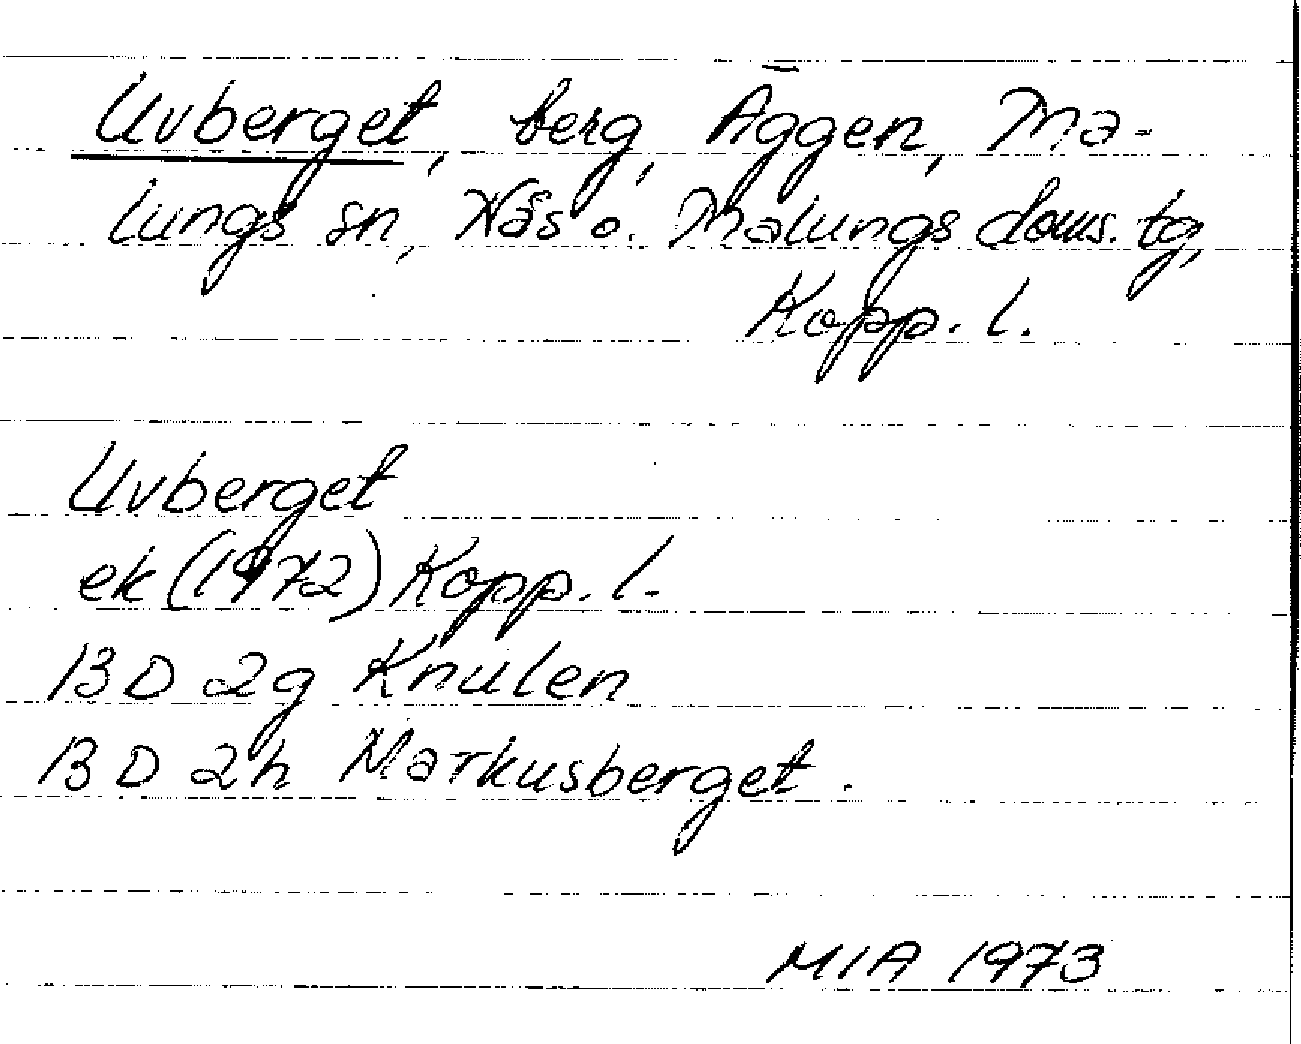 Uvberget, berg, Äggen, Ma-
lungs sn, Nås o. Malungs doms. tg,
Kopp. l.
Uvberget
ek (1972) Kopp. l.
13 D 2g Knulen
13 D 2h Markusberget.
MIA 1973